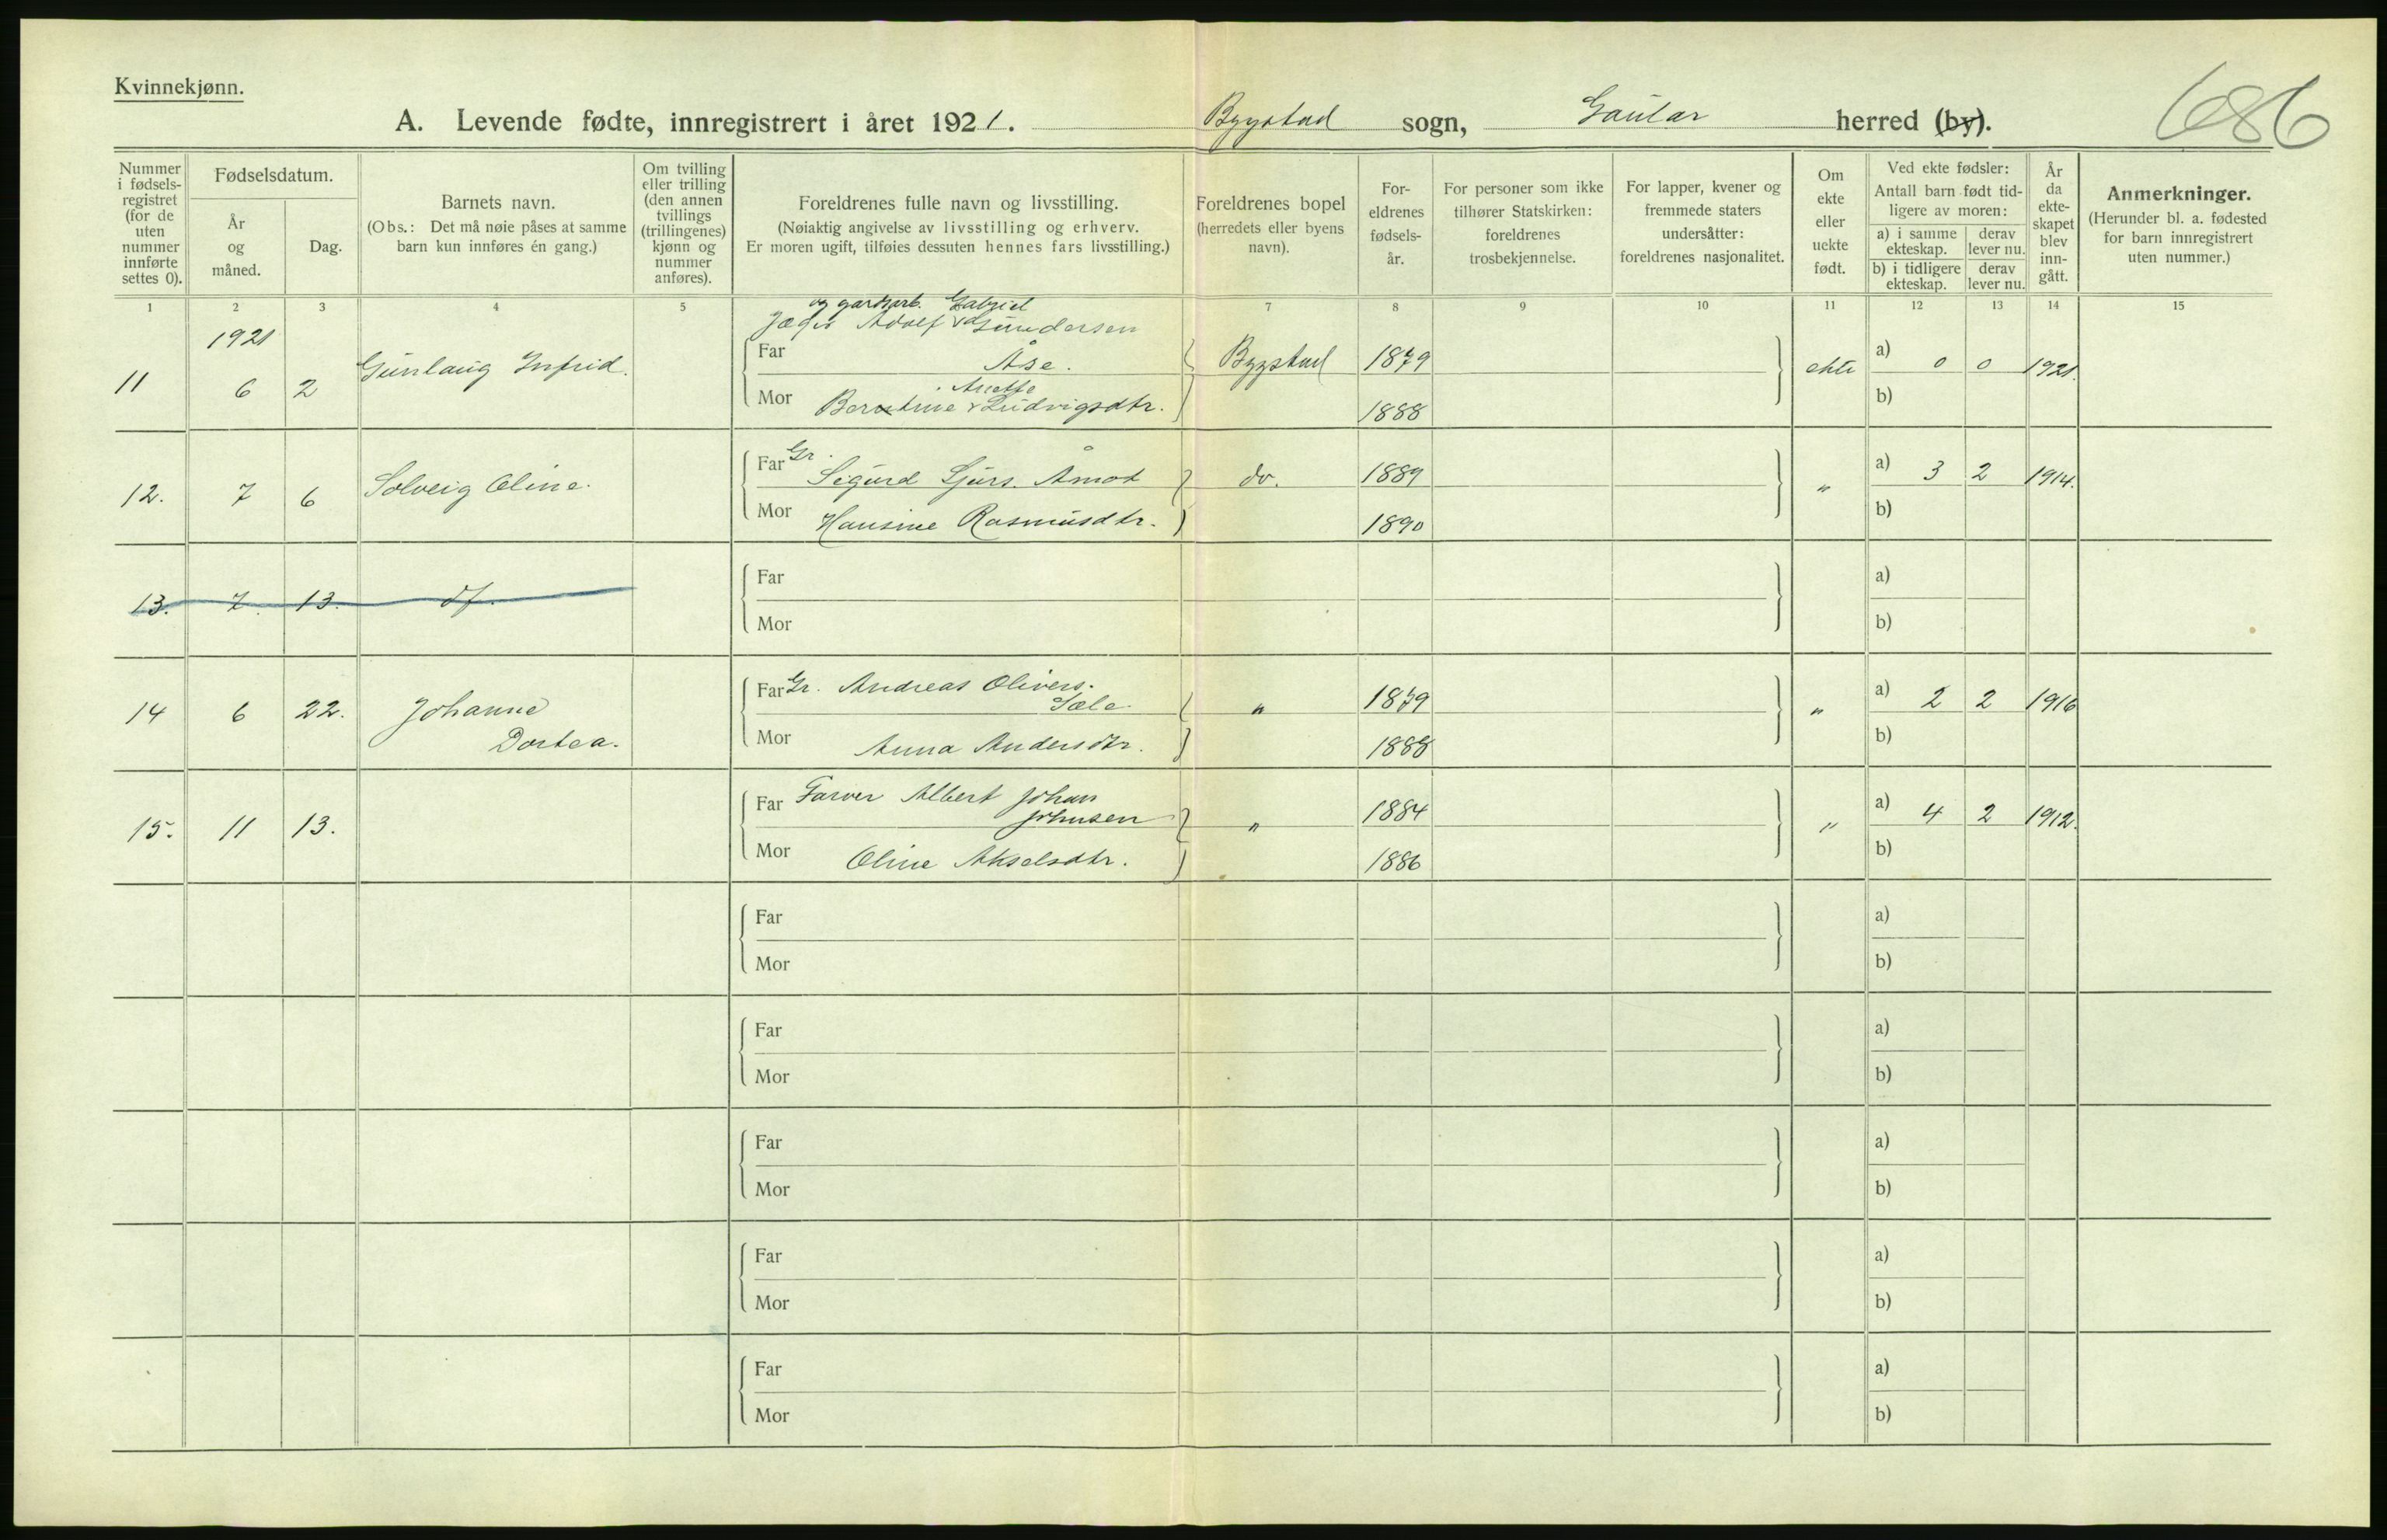 Kvinnekjønn.
686
A. Levende fødte, innregistrert i året 1921. Bygstad sogn, Gaular herred (by).
Nummer i fødselsregistret (for de uten nummer innførte settes 0).
Fødselsdatum.
År og måned.
Dag.
Barnets navn.
(Obs.: Det må nøie påses at samme barn kun innføres én gang.)
Om tvilling eller trilling (den annen tvillings (trillingenes) kjønn og nummer anføres).
Foreldrenes fulle navn og livsstilling.
(Nøiaktig angivelse av livsstilling og erhverv.
Er moren ugift, tilføies dessuten hennes fars livsstilling.)
Foreldrenes bopel (herredets eller byens navn).
Foreldrenes fødselsår.
For personer som ikke tilhører Statskirken: foreldrenes trosbekjennelse.
For lapper, kvener og fremmede staters undersåtter: foreldrenes nasjonalitet.
Om ekte eller uekte født.
Ved ekte fødsler:
Antall barn født tidligere av moren:
a) i samme ekteskap.
derav lever nu.
b) i tidligere ekteskap.
derav lever nu.
År da ekteskapet blev inngått.
Anmerkninger.
(Herunder bl. a. fødested for barn innregistrert uten nummer.)
1 2 3 4 5 7 8 9 10 11 12 13 14 15
1921
og gardsarb. Gabriel
Jæger Adolf Gundersen
11 6 2 Gunlaug
Far Åse. Bygstad 1879 ekte a) 0 0 1921.
Anette
Mor Ludvigsdtr. 1888 b)
12. 7 6 Solveig Oline.
Far Gr. Sigurd Sjurs. Åmot do. 1889 " a) 3 2 1914.
Mor Hansine Rasmusdtr. 1890 b)
13. 7. 13. df.
Far a)
Mor b)
14 6 22. Johanne Dortea.
Far Gr. Andreas Olivers. Sæle. " 1879 " a) 2 2 1916
Mor Anna Andersdtr. 1888 b)
15. 11 13.
Far Farver Albert Johan Johnsen " 1884 " a) 4 2 1912.
Mor Oline Akselsdtr. 1886 b)
Far a)
Mor b)
Far a)
Mor b)
Far a)
Mor b)
Far a)
Mor b)
Far a)
Mor b)